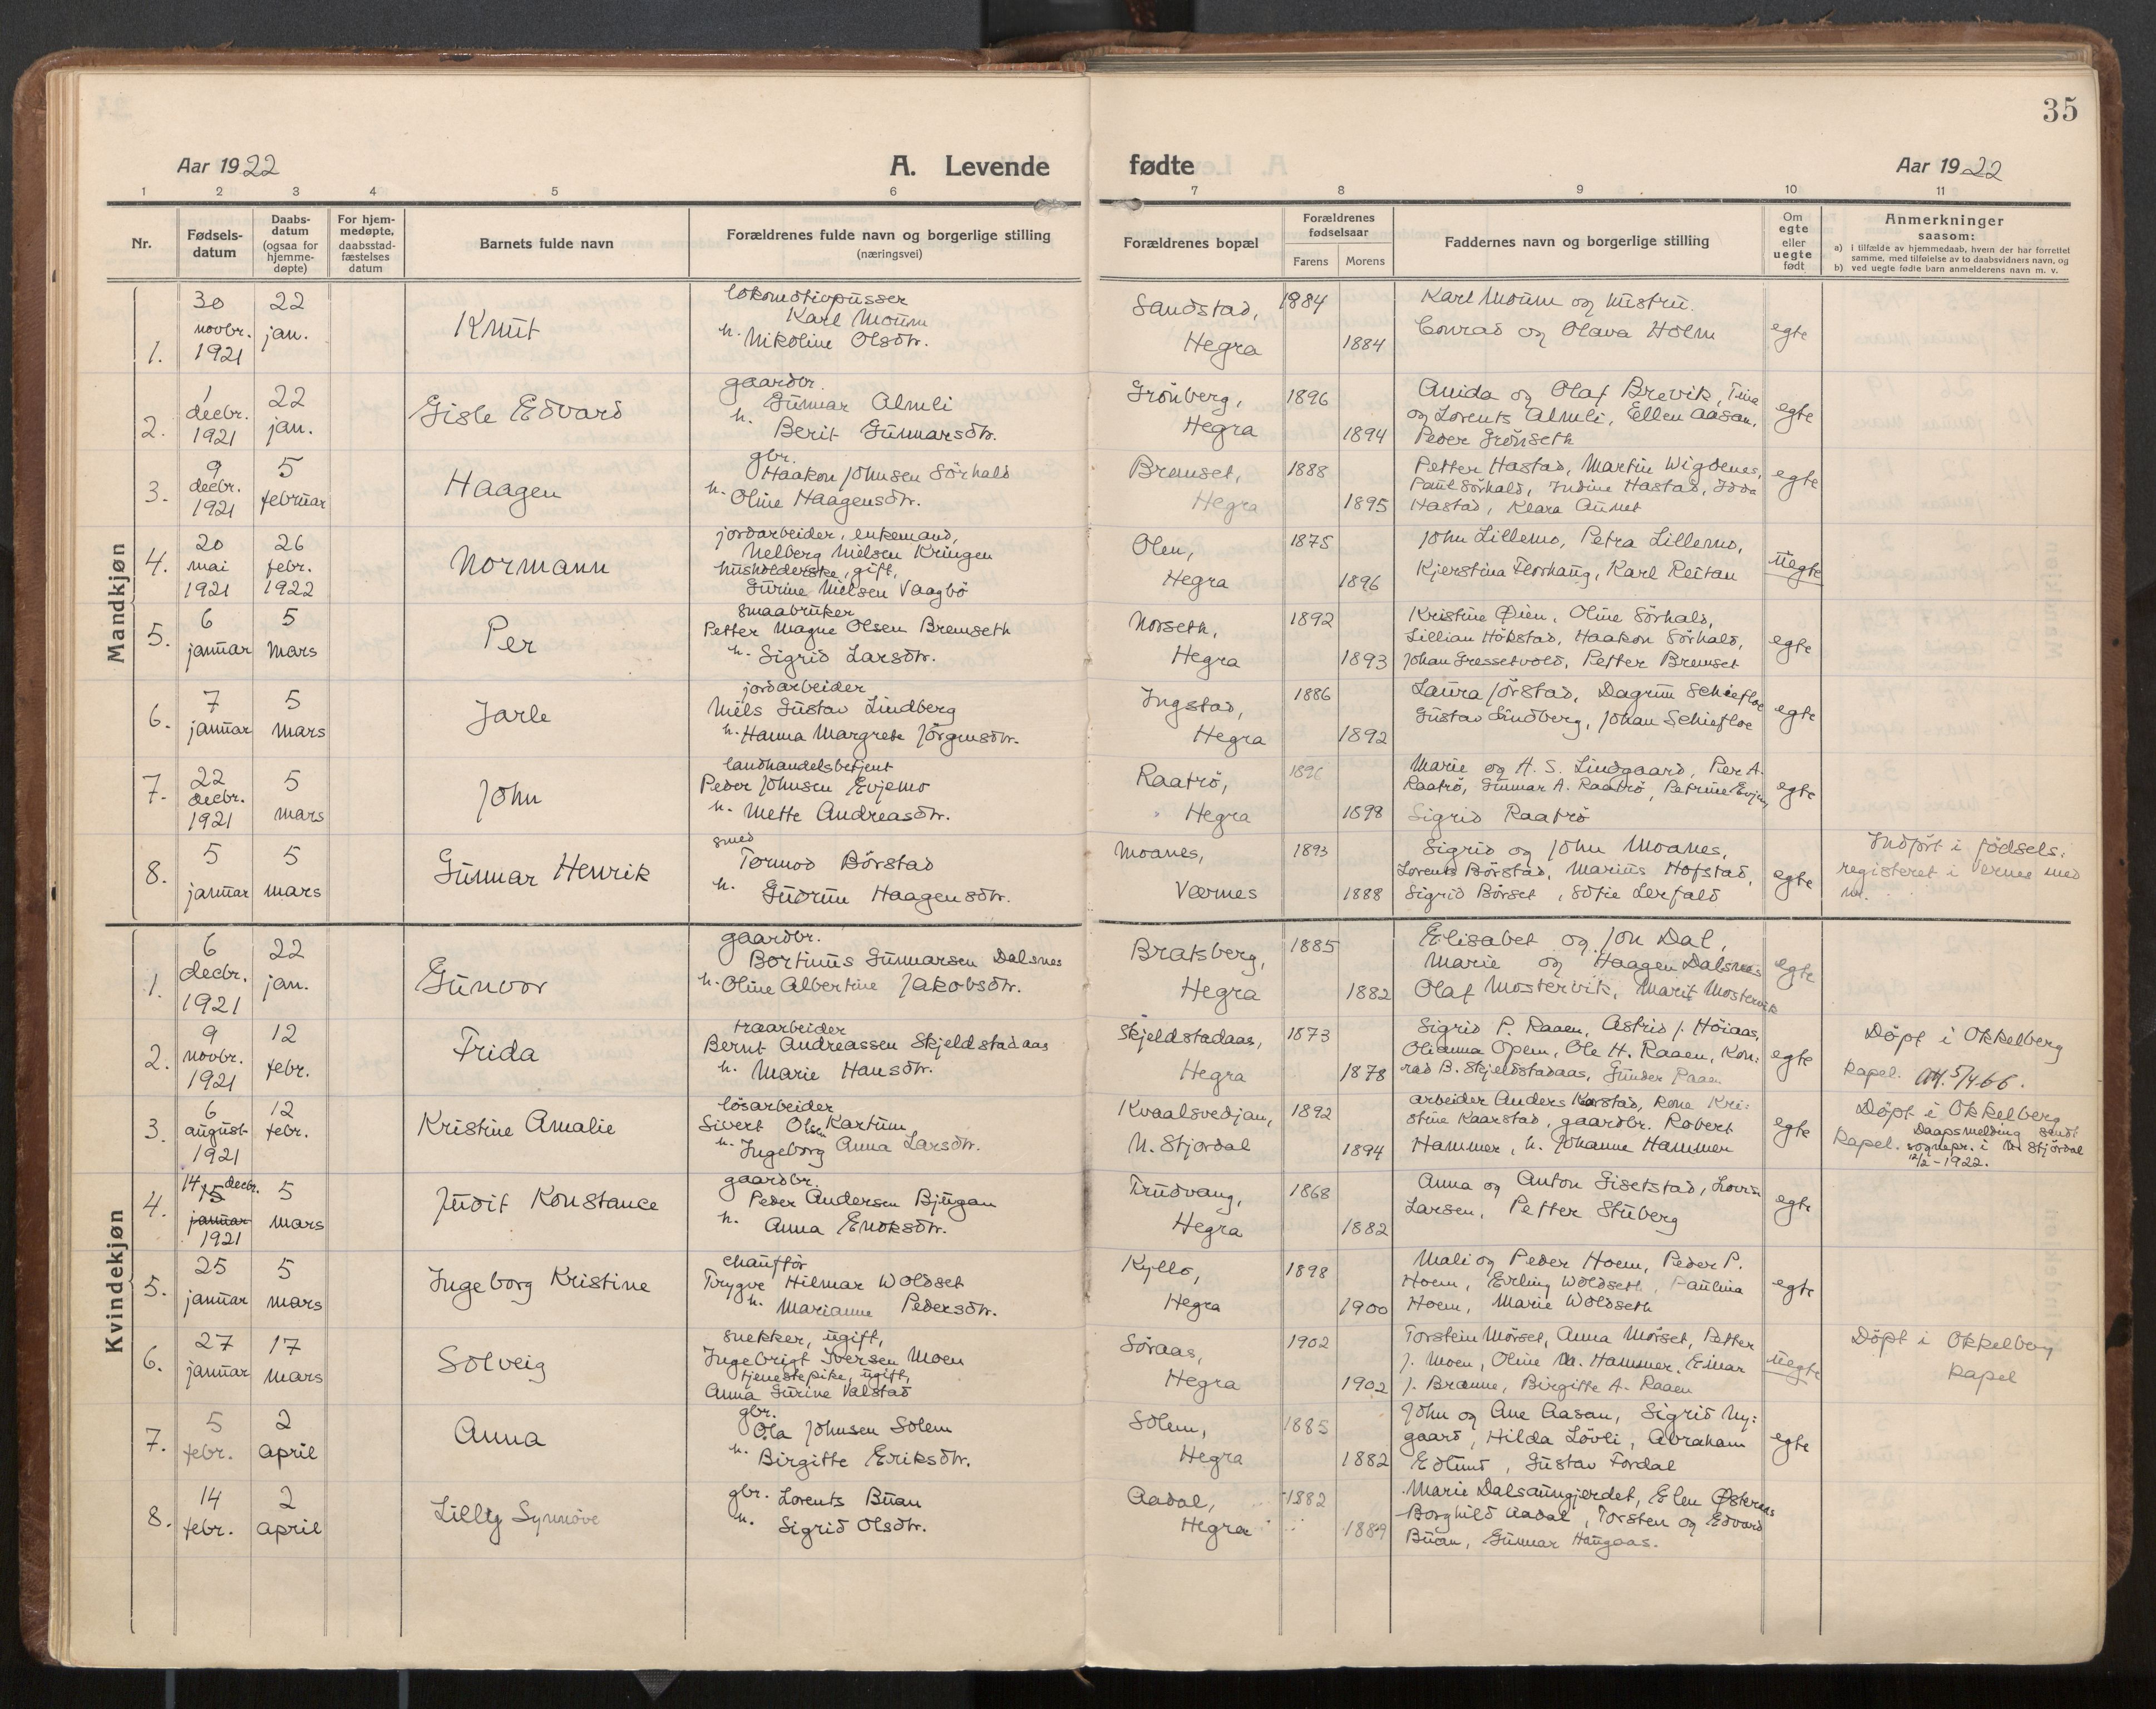 35
Aar 1922
A. Levende fødte
Aar 1922
1 2 3 4 5 6 7 8 9 10 11
Nr.
Fødsels-
datum
Daabs-
datum
(ogsaa for
hjemme-
døpte)
For hjem-
medøpte,
daabsstad-
fæstelses
datum
Barnets fulde navn
Forældrenes fulde navn og borgerlige stilling
(næringsvei)
Forældrenes bopæl
Forældrenes
fødselsaar
Farens Morens
Faddernes navn og borgerlige stilling
Om
egte
eller
uegte
født
Anmerkninger
saasom:
a) i tilfælde av hjemmedaab, hvem der har forrettet
samme, med tilføielse av to daabsvidners navn, og
b) ved uegte fødte barn anmelderens navn m. v.
Mandkjøn
1.
30
novbr.
1921
22
jan.
Knut
lokomotivpusser
Karl Moum
h. Nikoline Olsdtr.
Sandstad,
Hegra
1884
1884
Karl Moum og hustru.
Conrad og Olava Holm
egte
2.
1
decbr.
1921
22
jan.
Gisle Edvard
gaardbr.
Gunnar Almli
h.
Berit Gunnarsdtr.
Grönberg,
Hegra
1896
1894
Anida og Olaf Brevik, Tine
og Lorents Almli, Ellen Aasan,
Peder Grönseth
egte
3.
9
decbr.
1921
5
februar
Haagen
gbr.
Haakon Johnsen Sörhald
h. Oline Haagensdtr.
Bremset,
Hegra
1888
1895
Petter Hastad, Martin Wigdenes,
Paul Sörhald, Indine Hastad, Idda
Hastad, Klara Aunet
egte
4.
20
mai
1921
26
febr.
1922
Normann
jordarbeider, enkemand,
Nelberg Nielsen Kringen
husholderske, gift,
Gurine Nielsen Vaagbö
Olen,
Hegra
1875
1896
John Lillemo, Petra Lillemo,
Kjerstina Flovhaug, Karl Reitan
uegte
5.
6
januar
5
mars
Per
smaabruker
Petter Magne Olsen Bremseth
h. Sigrid Larsdtr.
Norseth,
Hegra
1892
1893
Kristine Øien, Oline Sörhald,
Lillian Hökstad, Haakon Sörhald,
Johan Gressetvold, Petter Bremset
egte
6.
7
januar
5
mars
Jarle
jordarbeider
Niels Gustav Lindberg
h. Hanna Margrete Jörgensdtr.
Ingstad,
Hegra
1886
1892
Laura Jörstad, Dagrun Schiefloe
Gustav Lindberg, Johan Schiefloe
egte
7.
22
decbr.
1921
5
mars
John
landhandelsbetjent
Peder Johnsen Evjemo
h. Mette Andreasdtr.
Raatrö,
Hegra
1898
Marie og H. S. Lindgaard, Per A.
Raatrö, Gunnar A. Raatrö, Petrine
Sigrid Raatrö
egte
8.
5
januar
5
mars
Gunnar Henrik
smed
Tormod Börstad
h.
Gudrun Haagensdtr.
Moanes,
Værnes
1893
1888
Sigrid og John Moanes,
Lorents Börstad, Marius Hofstad,
Sigrid Börset, Sofie Lerfald
egte
Indfört i födsels-
registeret i Vernes med
nr.
Kvindekjøn
1.
6
decbr.
1921
22
jan.
Gunvor
gaardbr.
Bortinus Gunnarsen Dalsnes
h. Oline Albertine Jakobsdtr.
Bratsberg,
Hegra
1885
1882
Elisabet og Jon Dal,
Marie og Haagen Dalsnes
Olaf Mostervik, Marit Mostervik
egte
2.
9
novbr.
1921
12
febr.
Frida
traarbeider
Bernt Andreassen Skjeldstadaas
h. Marie Hansdtr.
Skjeldstadaas,
Hegra
1873
1878
Sigrid P. Raaen, Astrid J. Höiaas,
Olianna Opem, Ole H. Raaen, Kon-
rad B. Skjeldstadaas, Gunder Raaen
egte
Döpt i Okkelberg
kapel. 5/4-66.
3.
6
august
1921
12
febr.
Kristine Amalie
lösarbeider
Sivert Olsen Kartum
h. Ingeborg Anna Larsdtr.
Kvaalsvedjan,
N. Stjordal
1892
1894
arbeider Anders Karstad, kone Kri-
stine Kaarstad, gaardbr. Robert
Hammer, h. Johanne Hammer
egte
Döpt i Okkelberg
kapel. Daapsmelding sendt
sognepr. i N. Stjördal
12/2-1922.
4.
14 15 decbr.
januar
1921
5
mars
Judit Konstance
gaardbr.
Peder Andersen Bjugan
h.
Anna Enoksdtr.
Trudvang,
Hegra
1868
1882
Anna og Anton Gisetstad, Lovise
Larsen, Petter Stuberg
egte
5.
25
januar
5
mars
Ingeborg Kristine
chauffør
Trygve Hilmar Woldset
h. Marianne Pedersdtr.
Kyllo,
Hegra
1898
1900
Mali og Peder Hoem, Peder P.
Hoem, Erling Woldseth, Paulina
Hoem, Marie Woldseth
egte
6.
27
januar
17
mars
Solveig
snekker, ugift,
Ingebrigt Iversen Moen
tjenestepike, ugift,
Anna Gurine Valstad
Søraas,
Hegra
1902
1902
Torstein Mörset, Anna Mörset, Petter
J. Moen, Oline M. Hammer, Einar
J. Brænne, Birgitte A. Raaen
uegte
Döpt i Okkelberg
kapel
7.
5
febr.
2
april
Anna
gbr.
Ola Johnsen Solem
h. Birgitte Eriksdtr.
Solem,
Hegra
1885
1882
John og Ane Aasan, Sigrid Ny-
gaard, Hilda Lövli, Abraham
Edlund, Gustav Fordal
egte
8.
14
febr.
2
april
Lilly Synnöve
gbr. Lorents Buan
h.
Sigrid Olsdtr.
Aadal,
Hegra
1882
1889
Marie Dalsaungjerdet, Elen Østeraas
Borghild Aadal, Torsten og Edvard
Buan, Gunnar Haugaas.